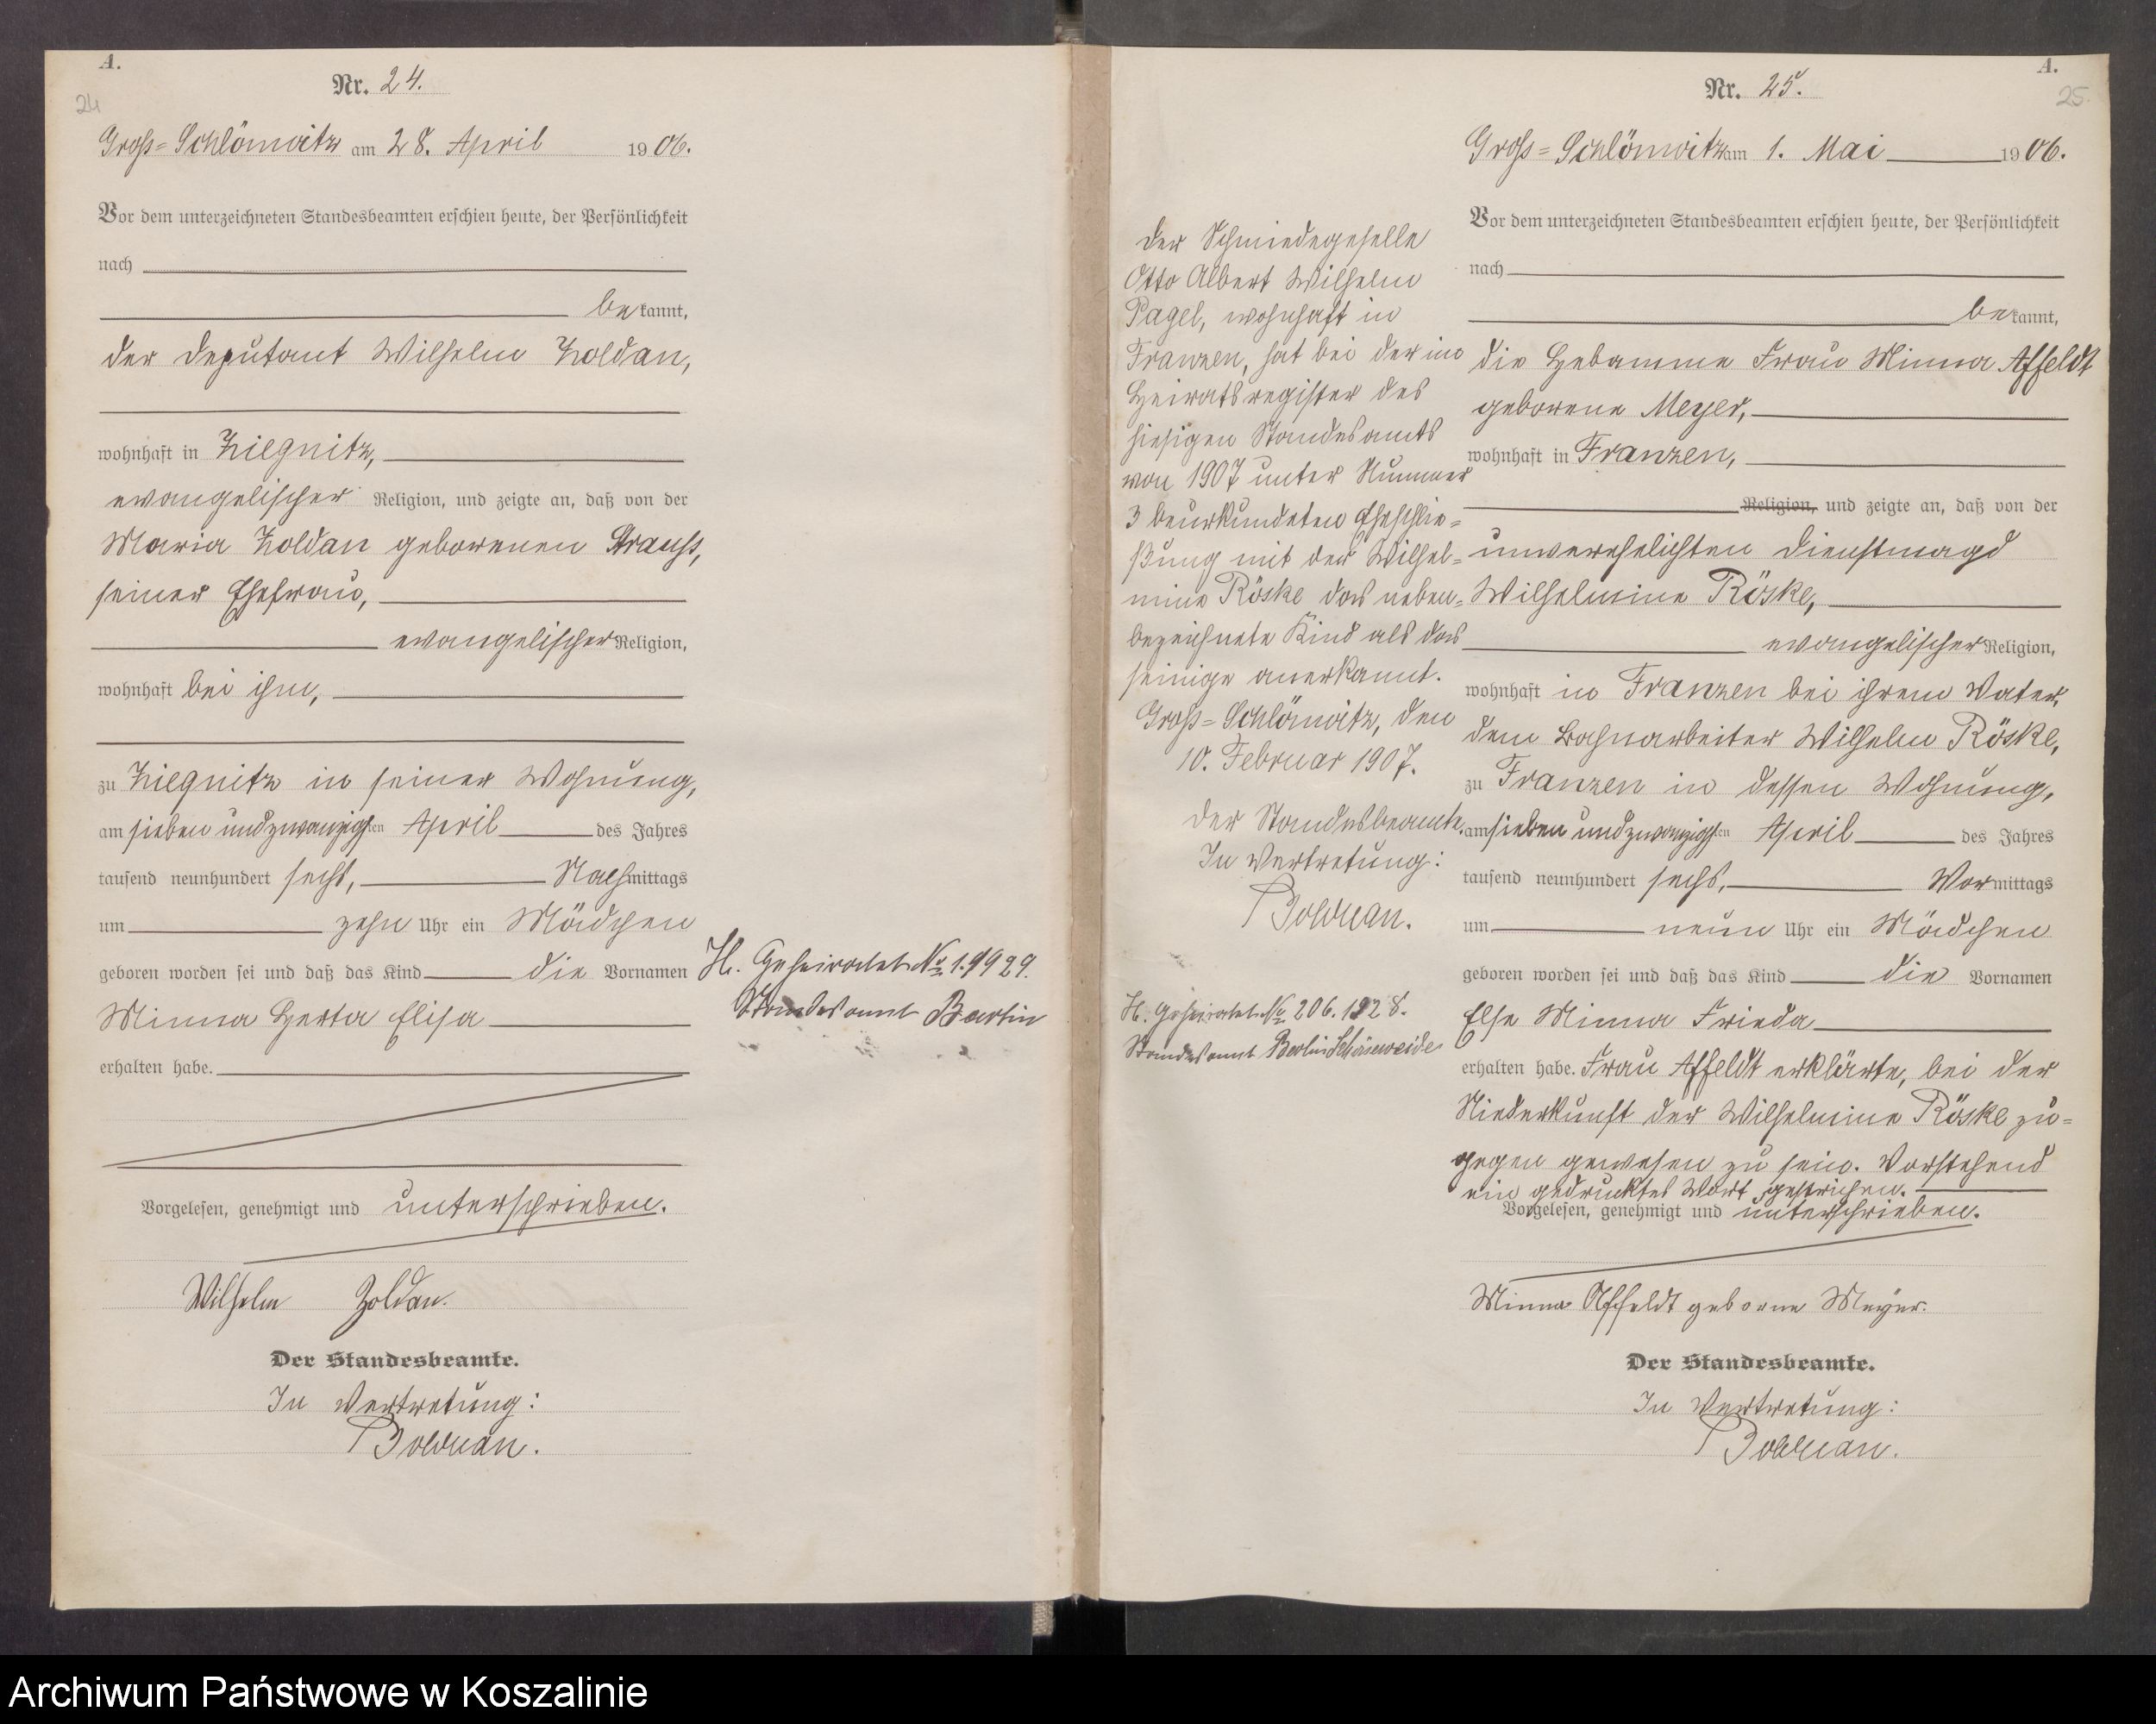 A.
Nr. 24.
24
Groß-Schlönwitz am 28. April 1906.
Vor dem unterzeichneten Standesbeamten erschien heute, der Persönlichkeit
nach
bekannt,
der Deputant Wilhelm Zoldan,
wohnhaft in Ziegnitz,
evangelischer Religion, und zeigte an, daß von der
Maria Zoldan geborenen Strauß,
seiner Ehefrau,
evangelischer Religion,
wohnhaft bei ihm,
zu Ziegnitz in seiner Wohnung,
am siebenundzwanzigsten April des Jahres
tausend neunhundert sechs, Nachmittags
um zehn Uhr ein Mädchen
geboren worden sei und daß das Kind die Vornamen
Minna Herta Elisa
erhalten habe.
Vorgelesen, genehmigt und unterschrieben.
Wilhelm Zoldan.
Der Standesbeamte.
In Vertretung:
Bolduan.
H. Geheiratet No 1.1929.
Standesamt Berlin
A.
Nr. 25.
25.
Groß-Schlönwitz am 1. Mai 1906.
Vor dem unterzeichneten Standesbeamten erschien heute, der Persönlichkeit
nach
bekannt,
die Hebamme Frau Minna Affeldt
geborene Meyer,
wohnhaft in Franzen,
Religion, und zeigte an, daß von der
unverehelichten Dienstmagd
Wilhelmine Röske,
evangelischer Religion,
wohnhaft in Franzen bei ihrem Vater,
dem Bahnarbeiter Wilhelm Röske,
zu Franzen in dessen Wohnung,
am siebenundzwanzigsten April des Jahres
tausend neunhundert sechs, Vormittags
um neun Uhr ein Mädchen
geboren worden sei und daß das Kind die Vornamen
Else Minna Frieda
erhalten habe. Frau Affeldt erklärte, bei der
Niederkunft der Wilhelmine Röske zu-
gegen gewesen zu sein. Vorstehend
ein gedrucktes Wort gestrichen.
Vorgelesen, genehmigt und unterschrieben.
Minna Affeldt geborne Meyer.
Der Standesbeamte.
In Vertretung:
Bolduan.
Der Schmiedegeselle
Otto Albert Wilhelm
Pagel, wohnhaft in
Franzen, hat bei der im
Heiratsregister des
hiesigen Standesamts
von 1907 unter Nummer
3 beurkundeten Eheschlie-
ßung mit der Wilhel-
mine Röske das neben-
bezeichnete Kind als das
seinige anerkannt.
Groß-Schlönwitz, den
10. Februar 1907.
Der Standesbeamte.
In Vertretung:
Bolduan.
H. Geheiratet No 206.1928.
Standesamt Berlin Schöneweide
Archiwum Państwowe w Koszalinie